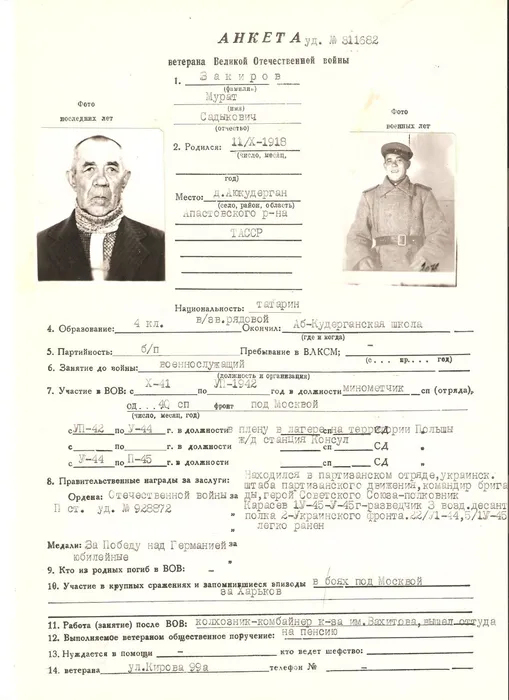 АНКЕТА уд. № 811682
ветерана Великой Отечественной войны
1. Закиров
(фамилия)
Мурат
(имя)
Садыкович
(отчество)
Фото
последних лет
Фото
военных лет
2. Родился: 11/X-1918
(число, месяц,
год)
Место: д.
(село, район, область)
Апастовского р-на
ТАССР
Национальность: татарин
4. Образование: 4 кл. в/зв.рядовой Окончил: Аб-Кудерганская школа
(где и когда)
5. Партийность: б/п Пребывание в ВЛКСМ: —
(с... пр.... год)
6. Занятие до войны: военнослужащий
(должность и организация)
7. Участие в ВОВ: с X-41 по УП-1942 год в должности минометчик сп (отряда),
од...40 сп фронт под Москвой
(число, месяц, год)
с УП-42 по У-44 г. в должности в плену в лагере на территории Польшы
с по г. в должности ж/д станция Консул СД "
с У-44 по П-45 г. в должности сп СД "
8. Правительственные награды за заслуги: Находился в партизанском отряде, украинск.
штаба партизанского движения, командир брига
Ордена: Отечественной войны за ды, герой Советского Союза-полковник
П ст. уд. № 928872 " Карасев 1У-45-У-45г-разведчик 3 возд.десант
" полка 2-Украинского фронта. 22/У1-44, 5/1У-45
легко ранен
Медали: За Победу над Германией за
юбилейные "
9. Кто из родных погиб в ВОВ: –
10. Участие в крупных сражениях и запомнившиеся эпизоды в боях под Москвой
за Харьков
11. Работа (занятие) после ВОВ: колхозник-комбайнер к-за им. Вахитова, вышел оттуда
12. Выполняемое ветераном общественное поручение: на пенсию
13. Нуждается в помощи – кто ведет шефство:
14. ветерана ул.Кирова 99а телефон № –